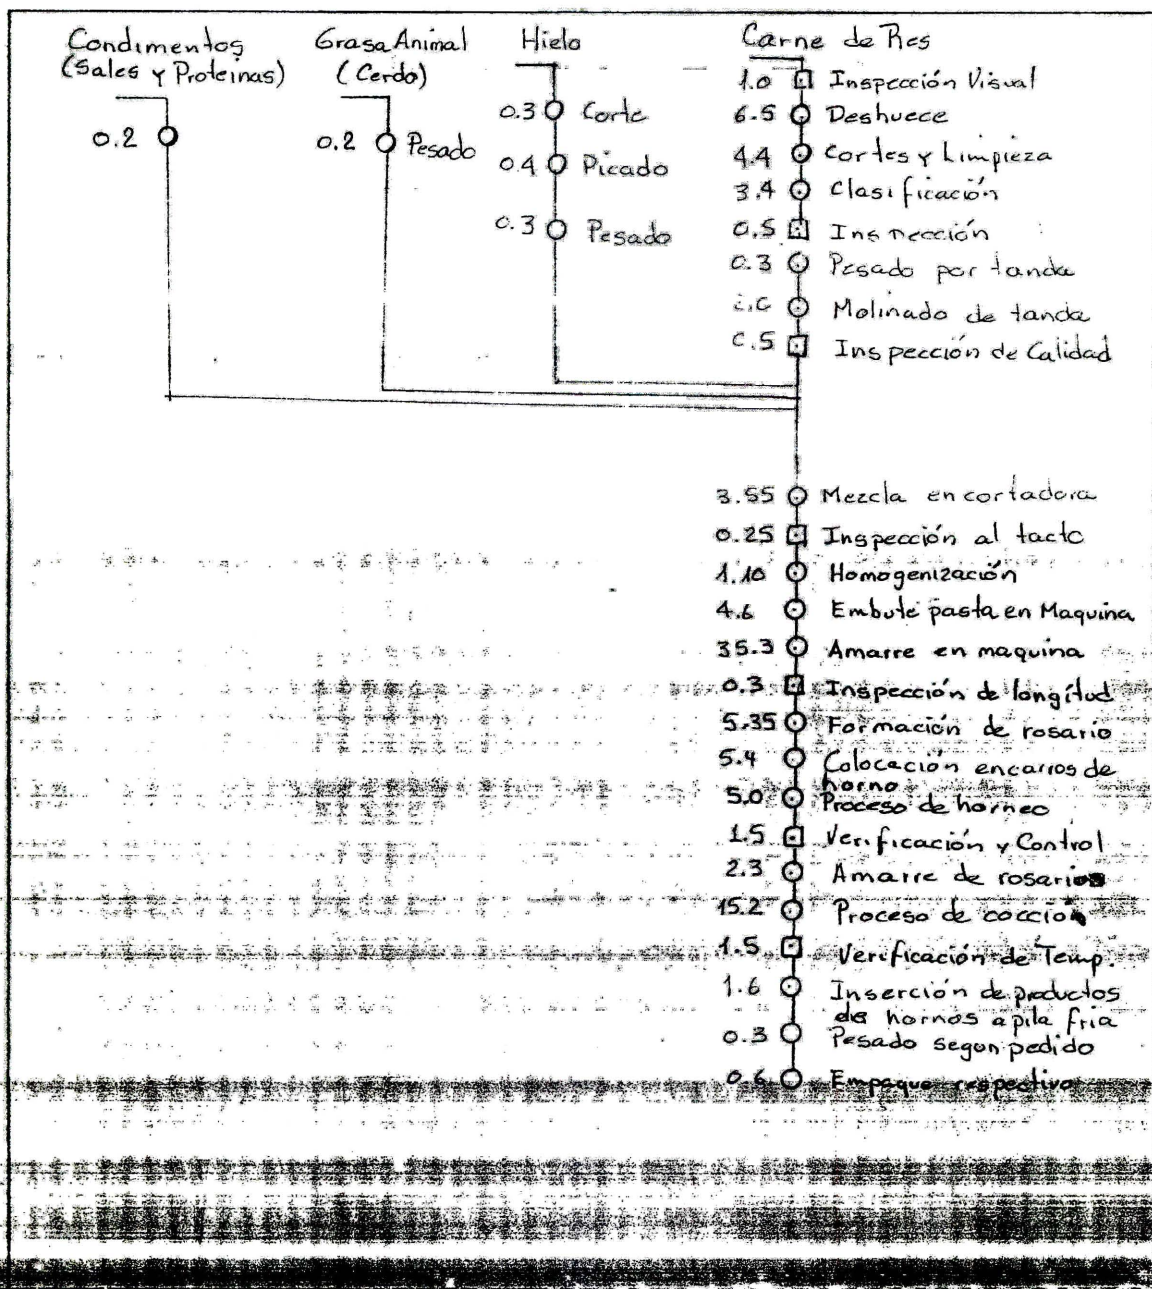 Condimentos
(Sales y Proteinas)
0.2
Grasa Animal
(Cerdo)
0.2 Pesado
Hielo
0.3 Corte
0.4 Picado
0.3 Pesado
Carne de Res
1.0 Inspección Visual
6.5 Deshuece
4.4 Cortes y Limpieza
3.4 Clasificación
0.5 Inspección
0.3 Pesado por tanda
Molinado de tanda
0.5 Inspección de Calidad
3.55 Mezcla en cortadora
0.25 Inspección al tacto
1.10 Homogenización
4.6 Embute pasta en Maquina
35.3 Amarre en maquina
0.3 Inspección de longítud
5.35 Formación de rosario
5.4 Colocación en carros de
horno
5.0 Proceso de horneo
1.5 Verificación y Control
2.3 Amarre de rosarios
15.2 Proceso de cocción
1.5 Verificación de Temp.
1.6 Inserción de productos
de hornos a pila fria
0.3 Pesado segun pedido
0.6 Empaque respectivo